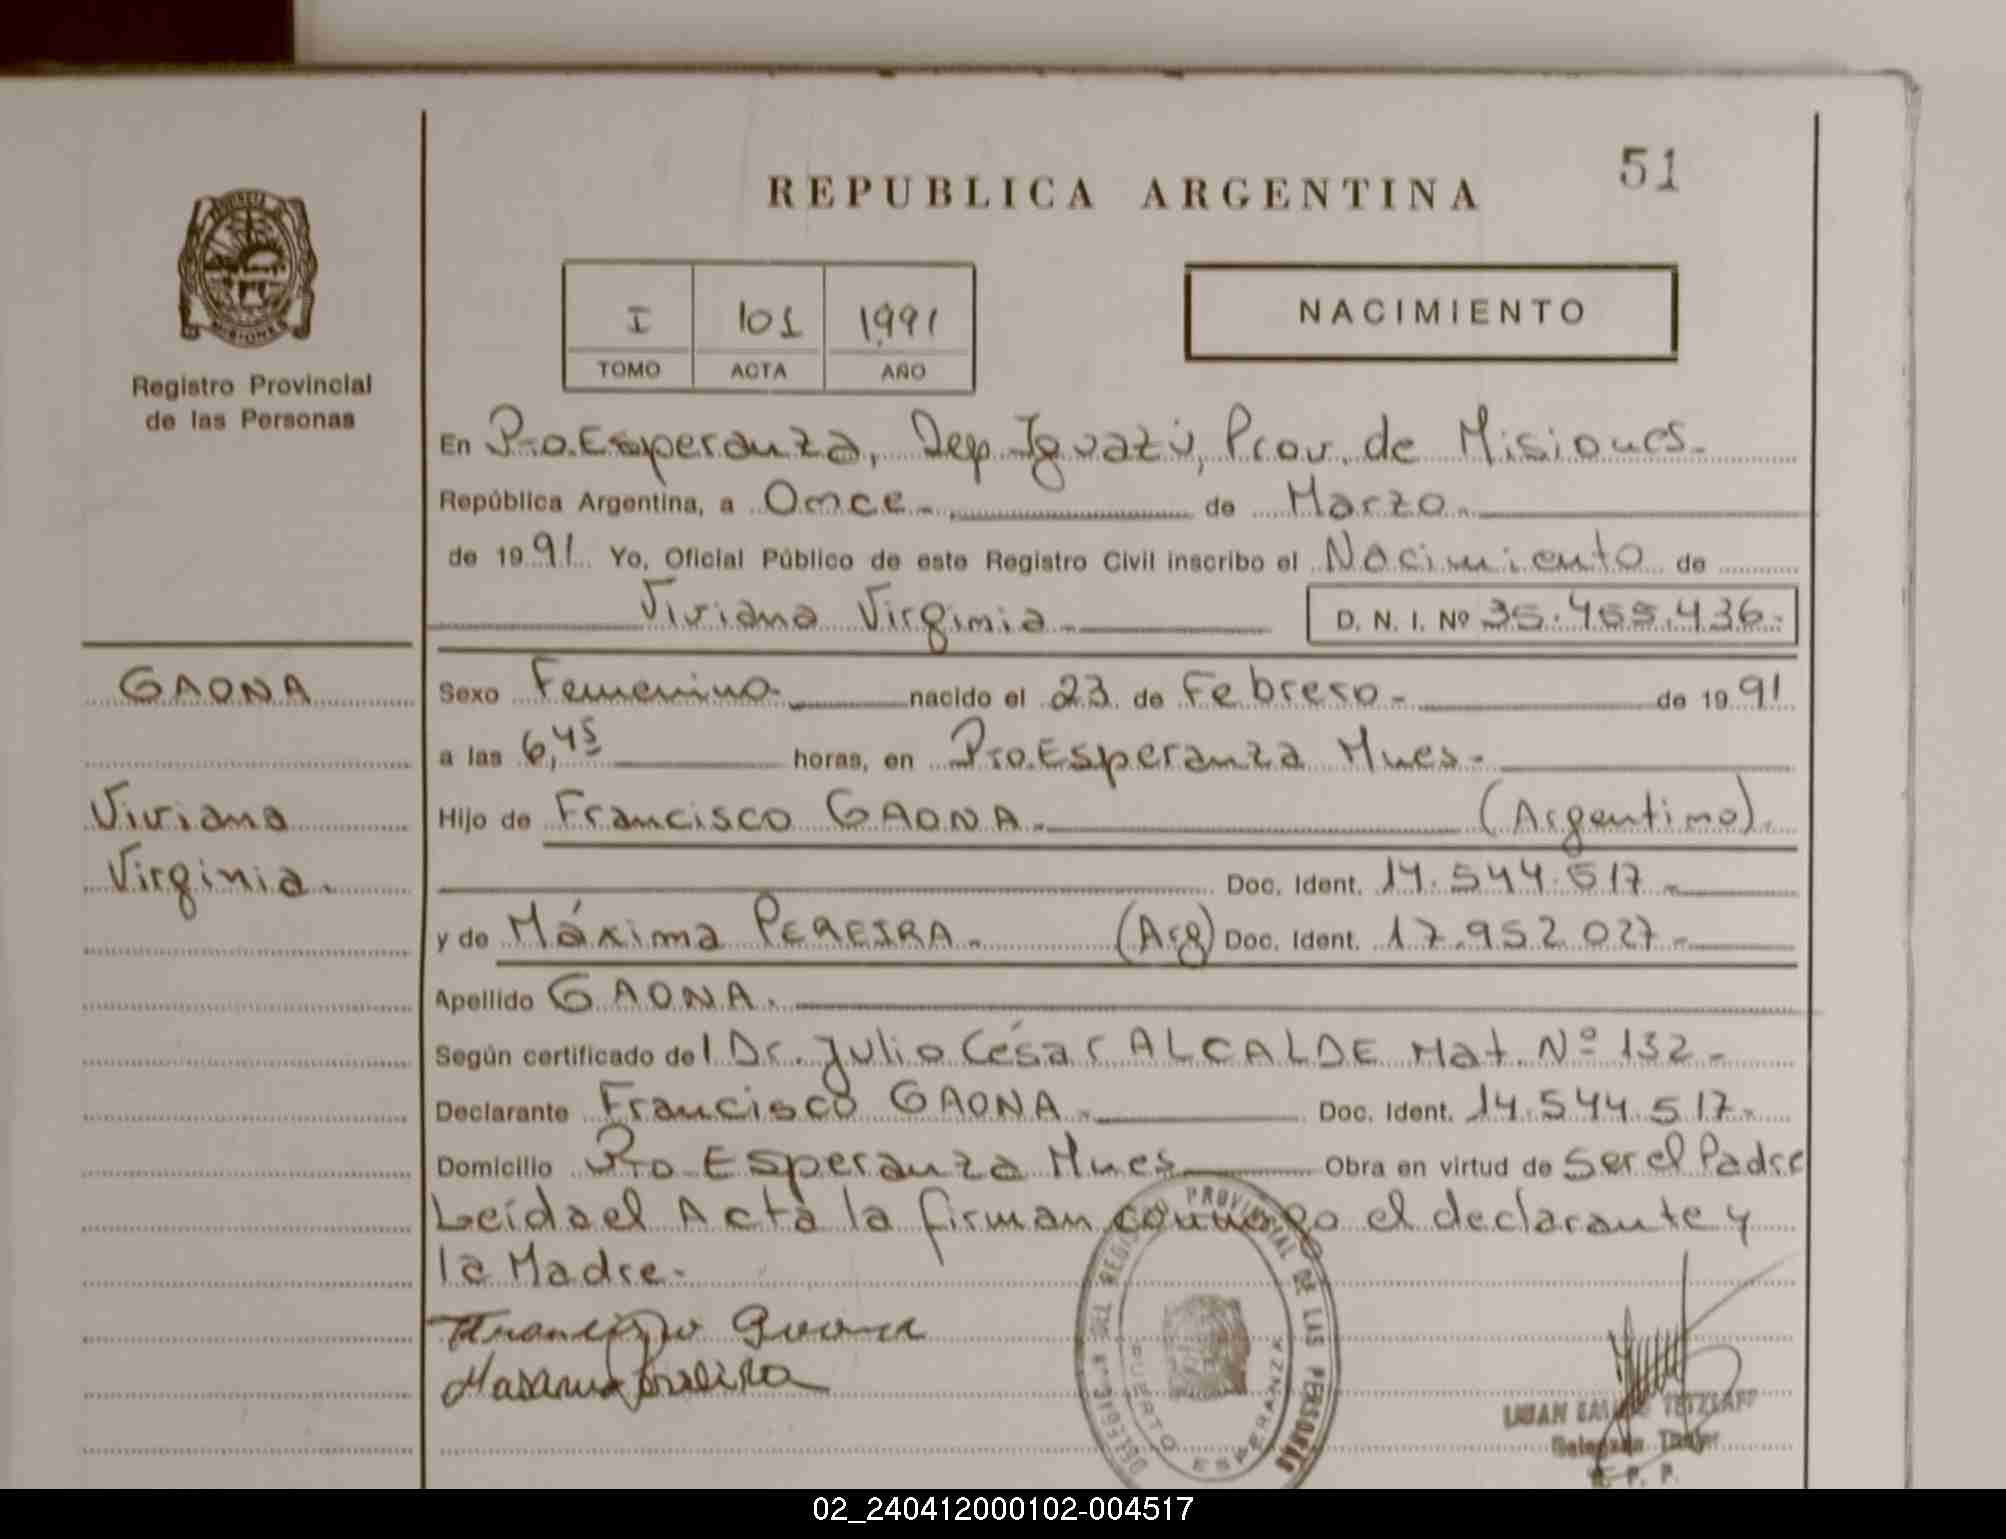 51
REPUBLICA ARGENTINA
I 101 1991
TOMO ACTA AÑO
NACIMIENTO
MISIONES
Registro Provincial
de las Personas
En Pto. Esperanza, Dep. Iguazú, Prov. de Misiones.-
República Argentina, a Once.- de Marzo.-
de 1991. Yo, Oficial Público de este Registro Civil inscribo el Nacimiento de
Viviana Virginia.-
D. N. I. Nº 35.455.436.-
GAONA
Viviana
Virginia.
Sexo Femenino.- nacido el 23 de Febrero.- de 1991
a las 6,45 horas, en Pto. Esperanza Mnes.-
Hijo de Francisco GAONA.- (Argentino).
Doc. Ident. 14.544.517.-
y de Máxima PEREIRA.- (Arg) Doc. Ident. 17.952.027.-
Apellido GAONA.-
Según certificado del Dr. Julio César ALCALDE Mat. Nº 132.-
Declarante Francisco GAONA.- Doc. Ident. 14.544.517.-
Domicilio Pto Esperanza Mnes.- Obra en virtud de Ser el Padre
Leída el Acta la firman conmigo el declarante y
la Madre.-
DEL REGISTRO PROVINCIAL DE LAS PERSONAS
PUERTO ESPERANZA
TETZLAFF
R. P. P.
02_240412000102-004517